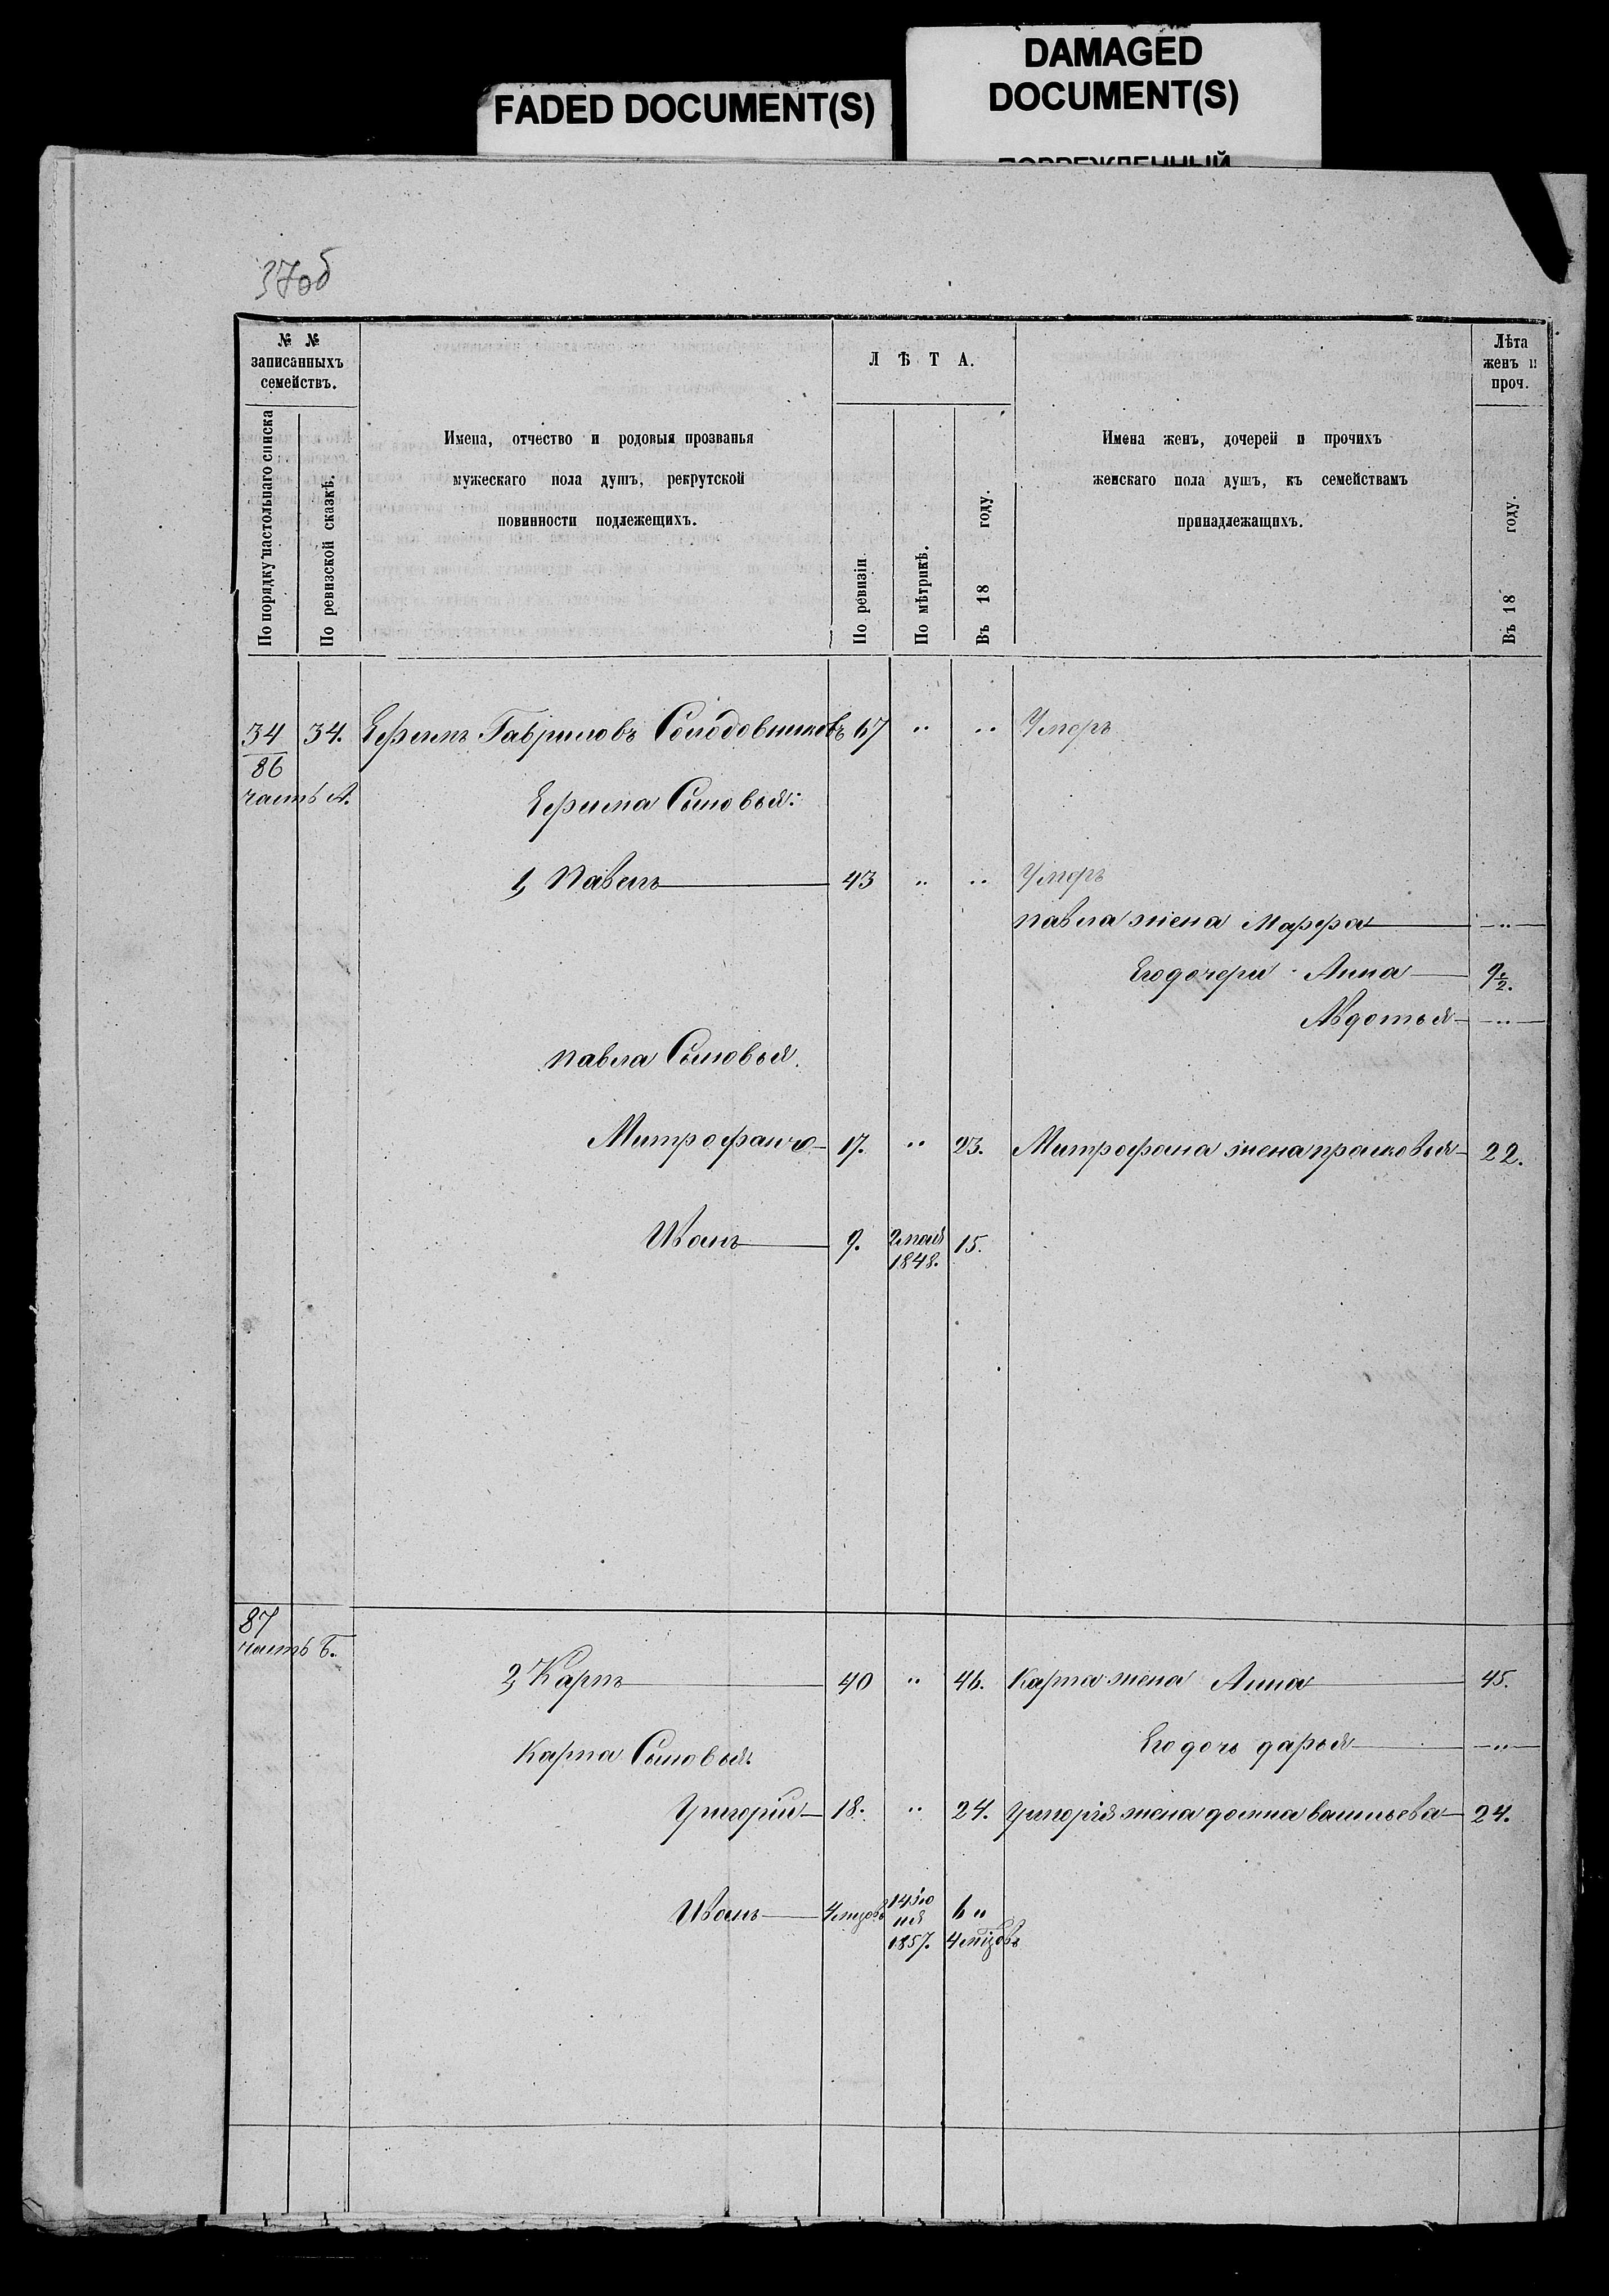 FADED DOCUMENT(S)
DAMAGED
DOCUMENT(S)
ПОВРЕЖДЕННЫЙ
37об
№ №
записанныхъ
семействъ.
По порядку настольнаго списка
По ревизской сказкѣ.
Имена, отчество и родовыя прозванья
мужескаго пола душъ, рекрутской
повинности подлежещихъ.
ЛѢТА.
По ревизіи
По мѣтрикѣ.
Въ 18 году.
Имена женъ, дочерей и прочихъ
женскаго пола душъ, къ семействамъ
принадлежащихъ.
Лѣта
женъ и
проч.
Въ 18 году.
34 34. Ефимъ Гавриловъ Солодовниковъ 67 " " Умеръ
86
часть А.
Ефима Сыновья:
1, Павелъ 43 " " Умеръ
павла жена Марфа "
Его дочери Анна 9 1/2.
Авдотья "
павла Сыновья.
Митрофанъ 17. " 23. Митрофана жена прасковья 22.
Иванъ 9. 2 мая 1848. 15.
87
часть Б.
2, Карпъ 40 " 46. Карпа жена Анна 45.
Его дочь дарья "
Карпа Сыновья.
Григорій 18. " 24. Григорія жена домна васильева 24.
Иванъ 4 мцовъ 14 іюня 1857. 6 " 4 мцовъ